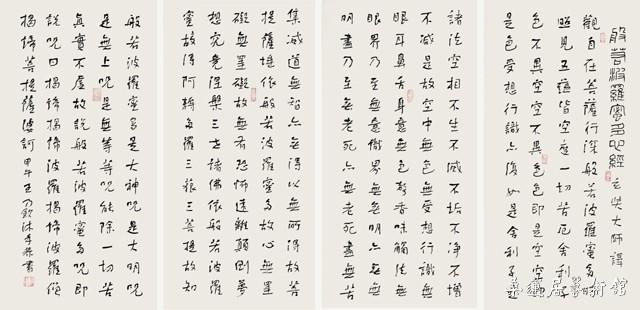 般若波羅蜜多心經 玄奘大師譯
觀自在菩薩行深般若波羅蜜多時
照見五蘊皆空度一切苦厄舍利子
色不異空空不異色色即是空空即
是色受想行識亦復如是舍利子是
諸法空相不生不滅不垢不淨不增
不減是故空中無色無受想行識無
眼耳鼻舌身意無色聲香味觸法無
眼界乃至無意識界無無明亦無無
明盡乃至無老死亦無老死盡無苦
集滅道無智亦無得以無所得故菩
提薩埵依般若波羅蜜多故心無罣
礙無罣礙故無有恐怖遠離顛倒夢
想究竟涅槃三世諸佛依般若波羅
蜜多故得阿耨多羅三藐三菩提故知
般若波羅蜜多是大神呪是大明呪
是無上呪是無等等呪能除一切苦
真實不虛故說般若波羅蜜多呪即
說呪曰揭諦揭諦波羅揭諦波羅僧
揭諦菩提薩婆訶 甲午